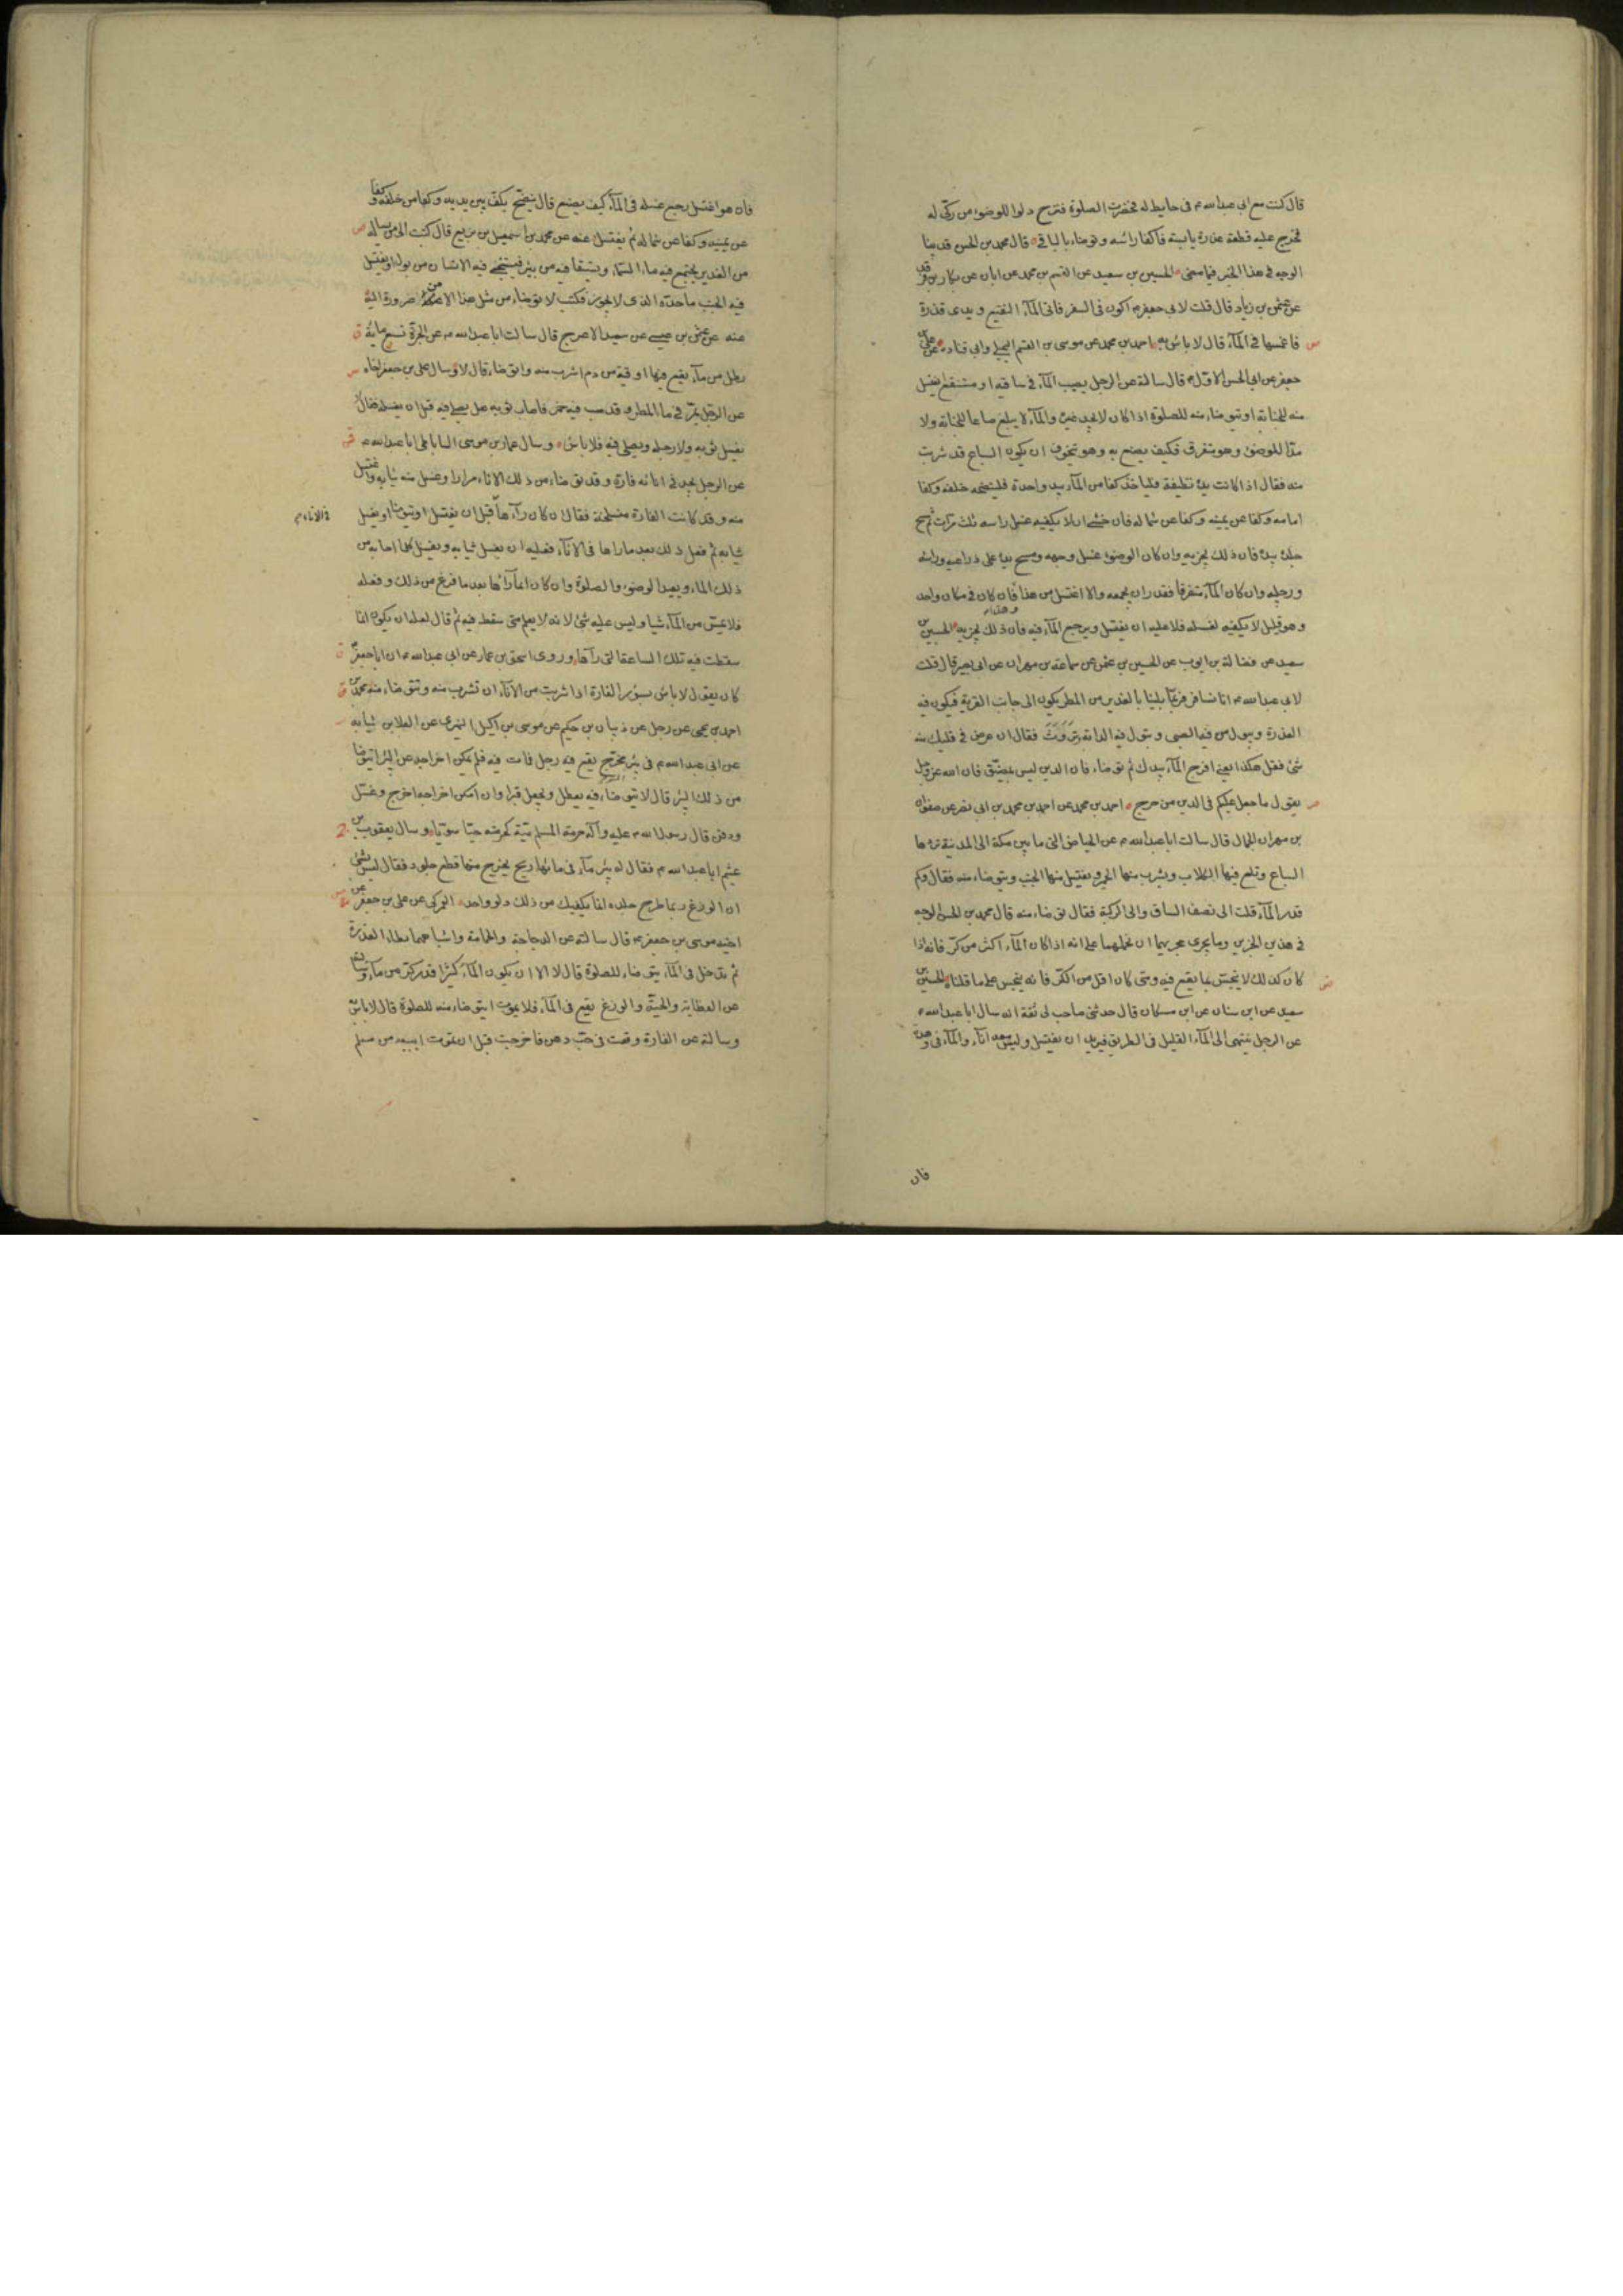 قال كنت مع ابى عبد الله ع فى حايط له فحضرت الصلوة فنزح دلوا للوضوء من ركى له
فخرج عليه قطعة عذرة يابسة فاكفا رأسه وتوضاء بالباقى قال محمد بن الحسن قد بينا
الوجه فى هذا الخبر فيما مضى الحسين بن سعيد عن القسم بن محمد عن ابان عن زكار بن فرقد
عن عثمن بن زياد قال قلت لابى جعفر ع اكون فى السفر فاتى المآء النقيع ويدى قذرة
ص فاغمسها فى المآء قال لا باس به احمد بن محمد عن موسى بن القسم البجلى وابى قتادة عن على بن
جعفر عن ابى الحسن الاول ع قال سالته عن الرجل يصيب المآء فى ساقية او مستنقع ايغتسل
منه للجنابة او يتوضاء منه للصلوة اذا كان لا يجد غيره والمآء لا يبلغ صاعا للجنابة ولا
مدّا للوضوء وهو متفرق فكيف يصنع به وهو يتخوف ان يكون السباع قد شربت
منه فقال اذا كانت يده نظيفة فلياخذ كفا من المآء بيد واحدة فلينضحه خلفه وكفا
امامه وكفا عن يمينه وكفا عن شماله فان خشى ان لا يكفيه غسل راسه ثلث مرات ثم مسح
جلده بيده فان ذلك يجزيه وان كان الوضوء غسل وجهه ومسح يده على ذراعيه وراسه
ورجليه وان كان المآء متفرقا فقدر ان يجمعه والا اغتسل من هذا وهذا فان كان فى مكان واحد
وهو قليل لا يكفيه لغسله فلا عليه ان يغتسل ويرجع المآء فيه فان ذلك يجزيه الحسين بن
سعيد عن فضالة بن ايوب عن الحسين بن عثمن عن سماعة بن مهران عن ابى بصير قال قلت
لابى عبد الله ع انا نسافر فربما بلينا بالغدير من المطر يكون الى جانب القرية فيكون فيه
العذرة ويبول فيه الصبى وتبول فيه الدابة وتروث فقال ان عرض فى قلبك منه
شئ فقل هكذا يعنى افرج المآء بيدك ثم توضاء فان الدين ليس بمضيّق فان الله عز وجل
ص يقول ما جعل عليكم فى الدين من حرج احمد بن محمد عن احمد بن محمد بن ابى نصر عن صفوان
بن مهران الجمال قال سالت ابا عبد الله ع عن الحياض التى ما بين مكة الى المدينة تردها
السباع وتلغ فيها الكلاب ويشرب منها الحمر ويغتسل منها الجنب ويتوضاء منه فقال وكم
قدر المآء قلت الى نصف الساق والى الركبة فقال توضاء منه قال محمد بن الحسن الوجه
فى هذين الخبرين وما يجرى مجريهما ان نحملهما على انه اذا كان المآء اكثر من كرّ فانه اذا
ص كان كذلك لا ينجس بما يقع فيه ومتى كان اقل من الكرّ فانه ينجس على ما قلناه الحسين بن
سعيد عن ابن سنان عن ابن مسكان قال حدثنى صاحب لى ثقة انه سال ابا عبد الله ع
عن الرجل ينتهى الى المآء القليل فى الطريق فيريد ان يغتسل وليس معه انآء والمآء فى وهدة
فان
فان هو اغتسل رجع غسله فى المآء كيف يصنع قال ينضح بكف بين يديه وكفا من خلفه وكفا
عن يمينه وكفا عن شماله ثم يغتسل عنه عن محمد بن اسمعيل بن بزيع قال كتبت الى من يساله ص
عن الغدير يجتمع فيه مآء السمآء ويستقا فيه من بئر فيستنجى فيه الانسان من بول او يغتسل
فيه الجنب ما حدّه الذى لا يجوز فكتب لا توضاء من مثل هذا الا من ضرورة اليه
عنه عن عثمن بن عيسى عن سعيد الاعرج قال سالت ابا عبد الله ع عن الجرّة تسع مائة ق
رطل من مآء يقع فيها اوقية من دم اشرب منه واتوضاء قال لا وسال على بن جعفر اخاه س
عن الرجل يمرّ فى مآء المطر وقد صب فيه خمر فاصاب ثوبه هل يصلى فيه قبل ان يغسله فقال لا
يغسل ثوبه ولا رجله ويصلى فيه فلا باس وسال عمار بن موسى الساباطى ابا عبد الله ع ق
عن الرجل يجد فى انائه فارة وقد توضاء من ذلك الاناء مرارا وغسل منه ثيابه واغتسل
منه وقد كانت الفارة منسلخة فقال ان كان رآها قبل ان يغتسل او يتوضا او يغسل
فى الاناء
ثيابه ثم فعل ذلك بعد ما راها فى الانآء فعليه ان يغسل ثيابه ويغسل كلما اصابه من
ذلك المآء ويعيد الوضوء والصلوة وان كان انما رآها بعد ما فرغ من ذلك وفعله
فلا يمس من المآء شيا وليس عليه شئ لانه لا يعلم متى سقط فيه ثم قال لعله ان يكون انما
سقطت فيه تلك الساعة التى رآها وروى اسحق بن عمار عن ابى عبد الله ع ان ابا جعفر ع ق
كان يقول لا باس بسؤر الفارة اذا شربت من الانآء ان تشرب منه وتتوضاء منه محمد بن ق
احمد بن يحيى عن رجل عن ذبيان بن حكيم عن موسى بن اكيل النميرى عن العلا بن سيابة
عن ابى عبد الله ع فى بئر محرج يقع فيه رجل فمات فيه فلم يمكن اخراجه من البئر ايتوضا
من ذلك البئر قال لا يتوضاء فيه يعطل ويجعل قبرا وان امكن اخراجه اخرج وغسّل
ودفن قال رسول الله عليه وآله حرمة المسلم ميّتة كحرمته حيّا سويّا وسال يعقوب بن
عثيم ابا عبد الله ع فقال له بئر مآء فى مائها ريح يخرج منها قطع جلود فقال ليس بشئ
ان الوزغ ربما طرح جلده انما يكفيك من ذلك دلو واحد العمركى عن على بن جعفر عن
اخيه موسى بن جعفر ع قال سالته عن الدجاجة والحمامة واشباههما تطاء العذرة
ثم تدخل فى المآء يتوضاء للصلوة قال لا الا ان يكون المآء كثيرا قدر كرّ من مآء وسالته
عن العظاية والحيّة والوزغ يقع فى المآء فلا يموت ايتوضاء منه للصلوة قال لا باس به
وسالته عن الفارة وقعت فى حبّ دهن فاخرجت قبل ان تموت ايبيعه من مسلم